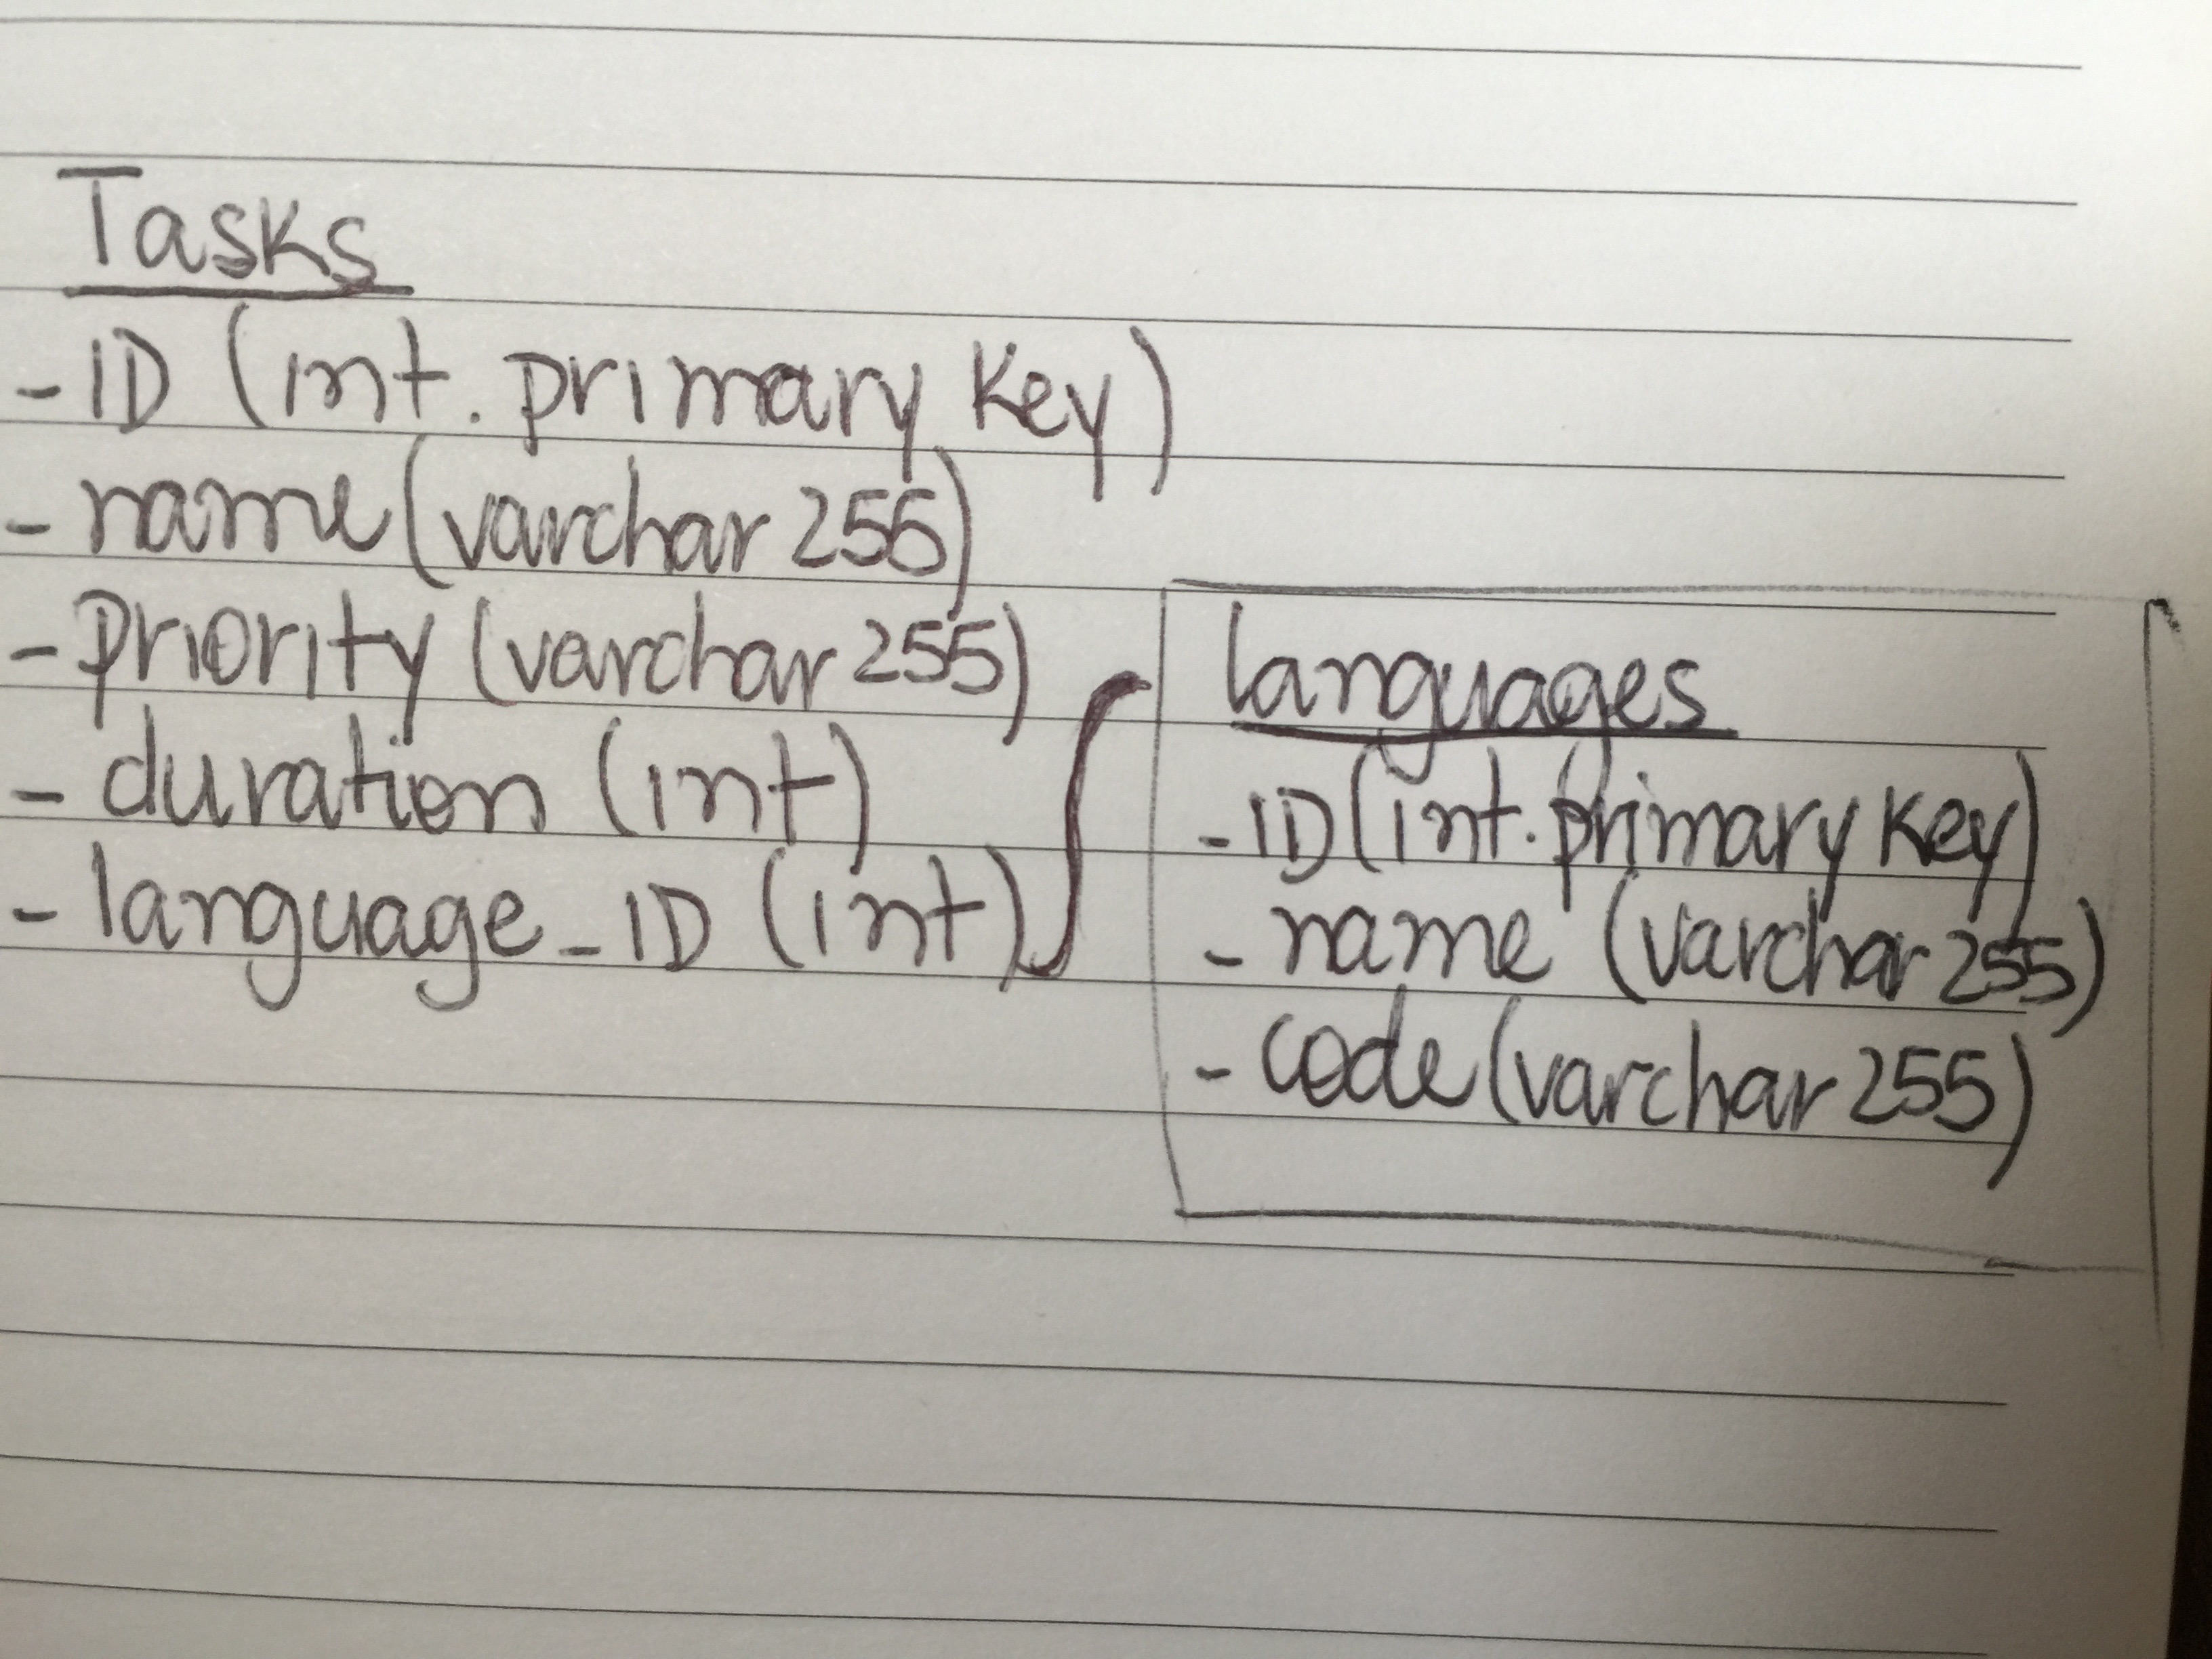 Tasks
- ID (int. primary key)
- name (varchar 255)
- priority (varchar 255)
- duration (int)
- language_ID (int)
languages
- ID (int. primary key)
- name (varchar 255)
- code (varchar 255)